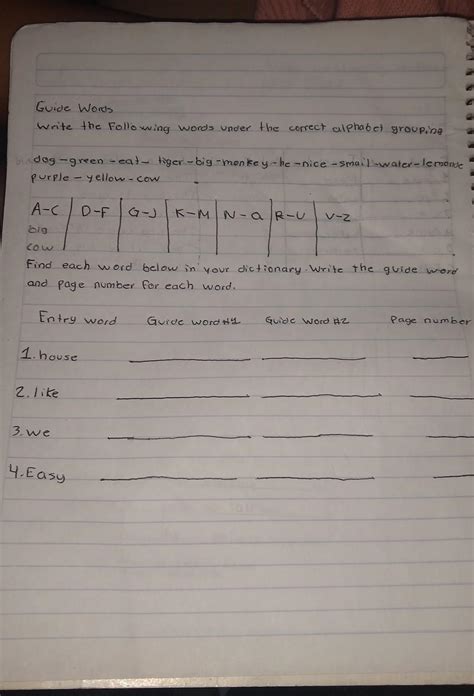 Guide Words
Write the Following words under the correct alphabet grouping
dog-green-eat-tiger-big-monkey-he-nice-small-water-lemonade
purple-yellow-cow
A-C D-F G-J K-M N-Q R-U V-Z
big
cow
Find each word below in your dictionary. Write the guide word
and page number for each word.
Entry word Guide word #1 Guide word #2 Page number
1. house
2. like
3. we
4. Easy